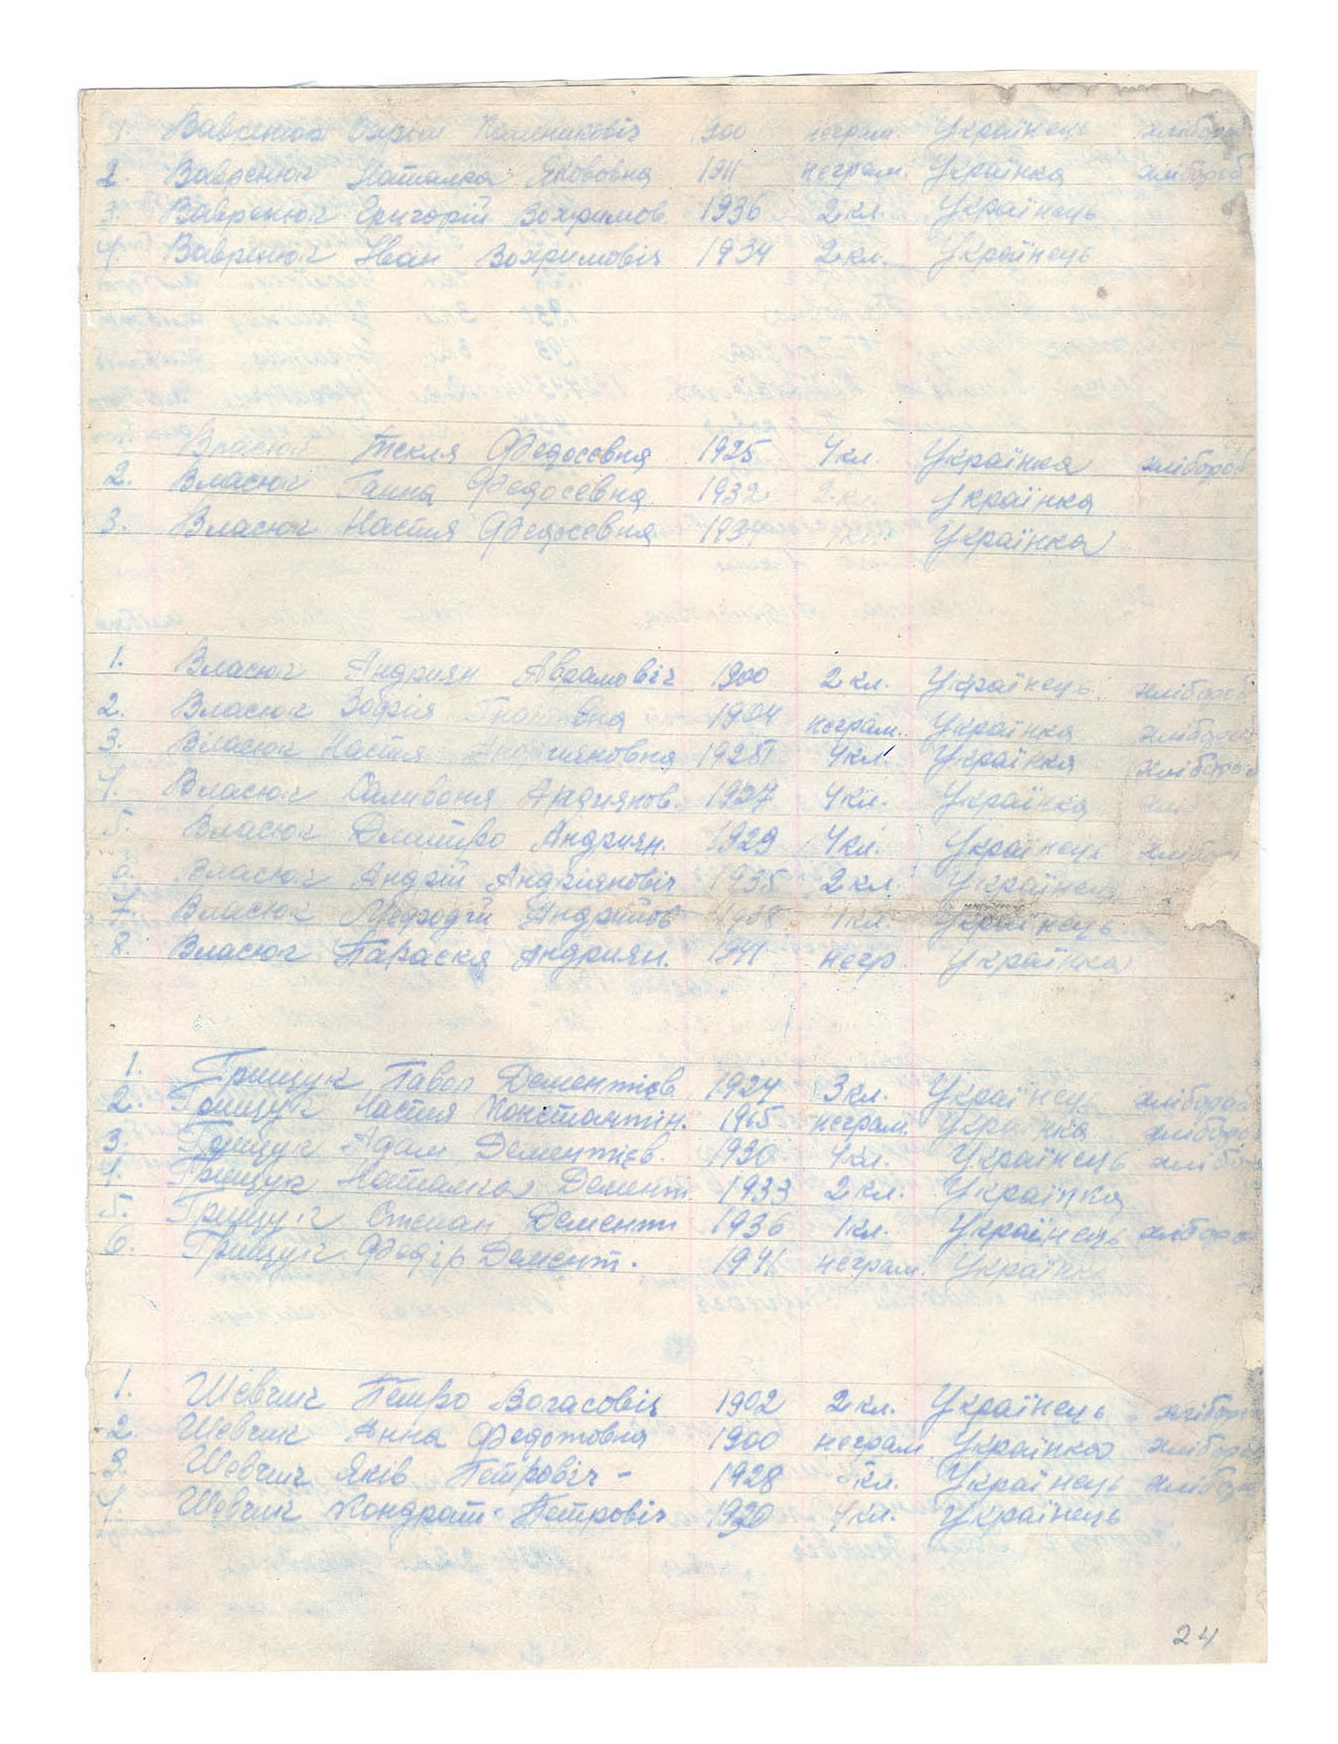 1. Вавренюк 1900 неграм. Українець хлібороб
2. Вавренюк Наталка Якововна 1911 неграм. Українка хлібороб
3. Вавренюк Григорій Вохримов 1936 2 кл. Українець
4. Вавренюк Иван Вохримовіч 1934 2 кл. Українець
Власюк Текля Федосевна 1925 4 кл. Українка хлібороб
2. Власюк Ганна Федосевна 1932 2 кл. Українка
3. Власюк Настия Федосевна Українка
1. Власюк Андриян Аврамовіч 1900 2 кл. Українець хлібороб
2. Власюк Зофія 1904 неграм. Українка хлібороб
3. Власюк Настия Андрияновна 1925 4 кл. Українка хлібороб
4. Власюк Саливоня Андриянов. 1927 4 кл. Українка
5. Власюк Дмитро Андриян. 1929 4 кл. Українець хлібор
6. Власюк Андрій Андріяновіч 1935 2 кл. Українець
7. Власюк Мефодій 1 кл. Українець
8. Власюк Параскя Андриян. 1941 негр. Українка
1. Грищук Павол Дементієв 1924 3 кл. Українець хлібороб
2. Грищук Настия Константін. неграм. Українка хлібороб
3. Грищук Адам Дементієв. 1930 4 кл. Українець хлібо
4. Грищук Наталка Демент. 1933 2 кл. Українка
5. Грищук Степан Демент 1936 1 кл. Українець хлібороб
6. Грищук Федір Демент. 1941 неграм.
1. Шевчик Петро Вогасовіч 1902 2 кл. Українець хлібороб
2. Шевчик Анна Федотовна 1900 неграм Українка хлібороб
3. Шевчик Яків Петровіч - 1928 5 кл. Українець хлібор
4. Шевчик Кондрат Петровіч 4 кл. Українець
24